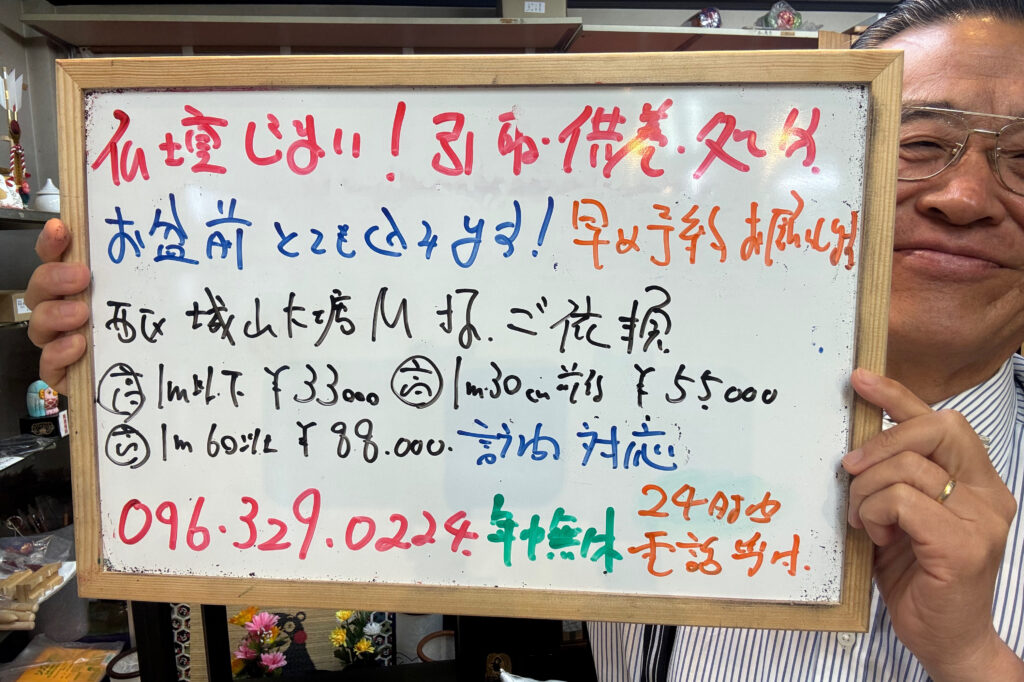 仏壇じまい!引取・供養・処分
お盆前とてもこみます!早め予約お願いします
西区城山大塘M様.ご依頼
小1m以下¥33000 中1m30cm前後¥55.000
大1m60以上¥88.000.諸
対応
096.329.0224.年中無休
24時間
電話受付.